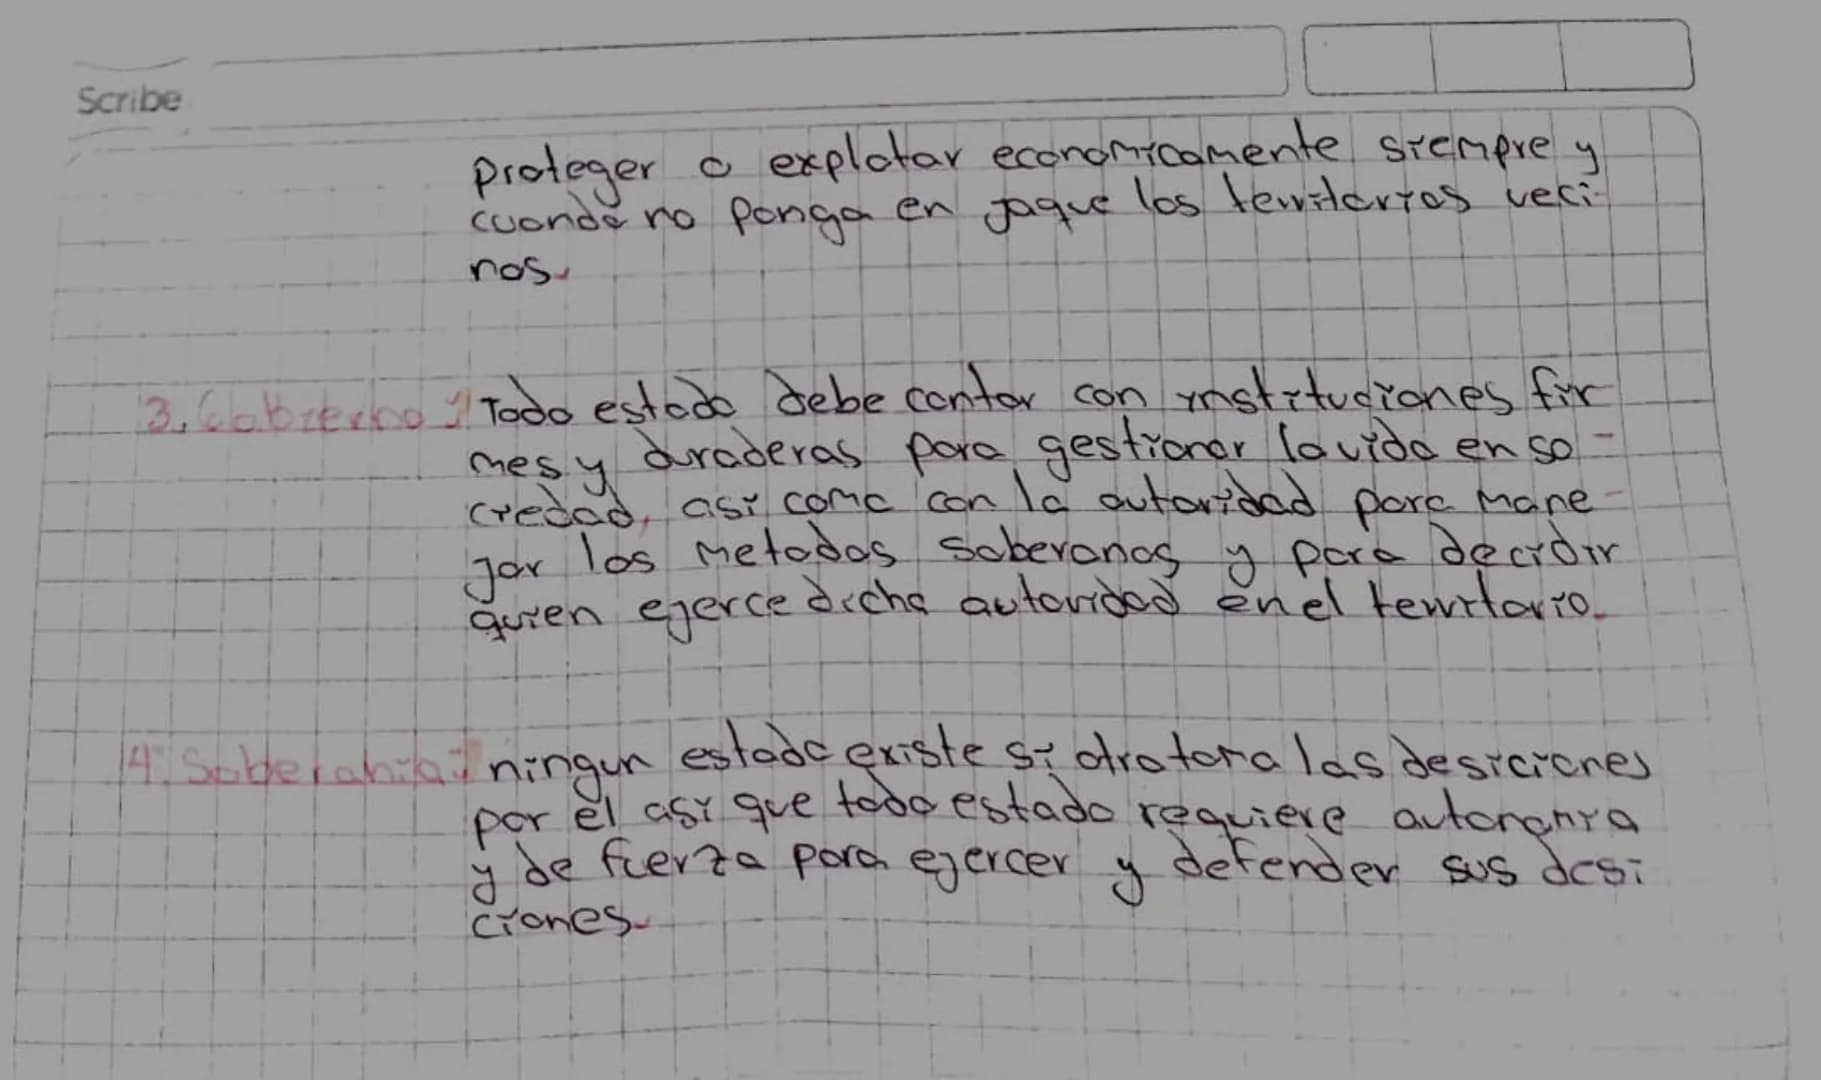 Scribe
proteger o explotar economicamente siempre y
cuando no ponga en jaque los territorios veci-
nos.
3. Gobierno: Todo estado debe contar con instituciones fir
mes y duraderas para gestionar la vida en so-
ciedad, así como con la autoridad para mane-
jar los metodos soberanos y para decidir
quien ejerce dicha autoridad en el territorio.
4. Soberania: ningun estado existe si otro toma las desiciones
por él así que todo estado requiere autonomía
y de fuerza para ejercer y defender sus desi
ciones.